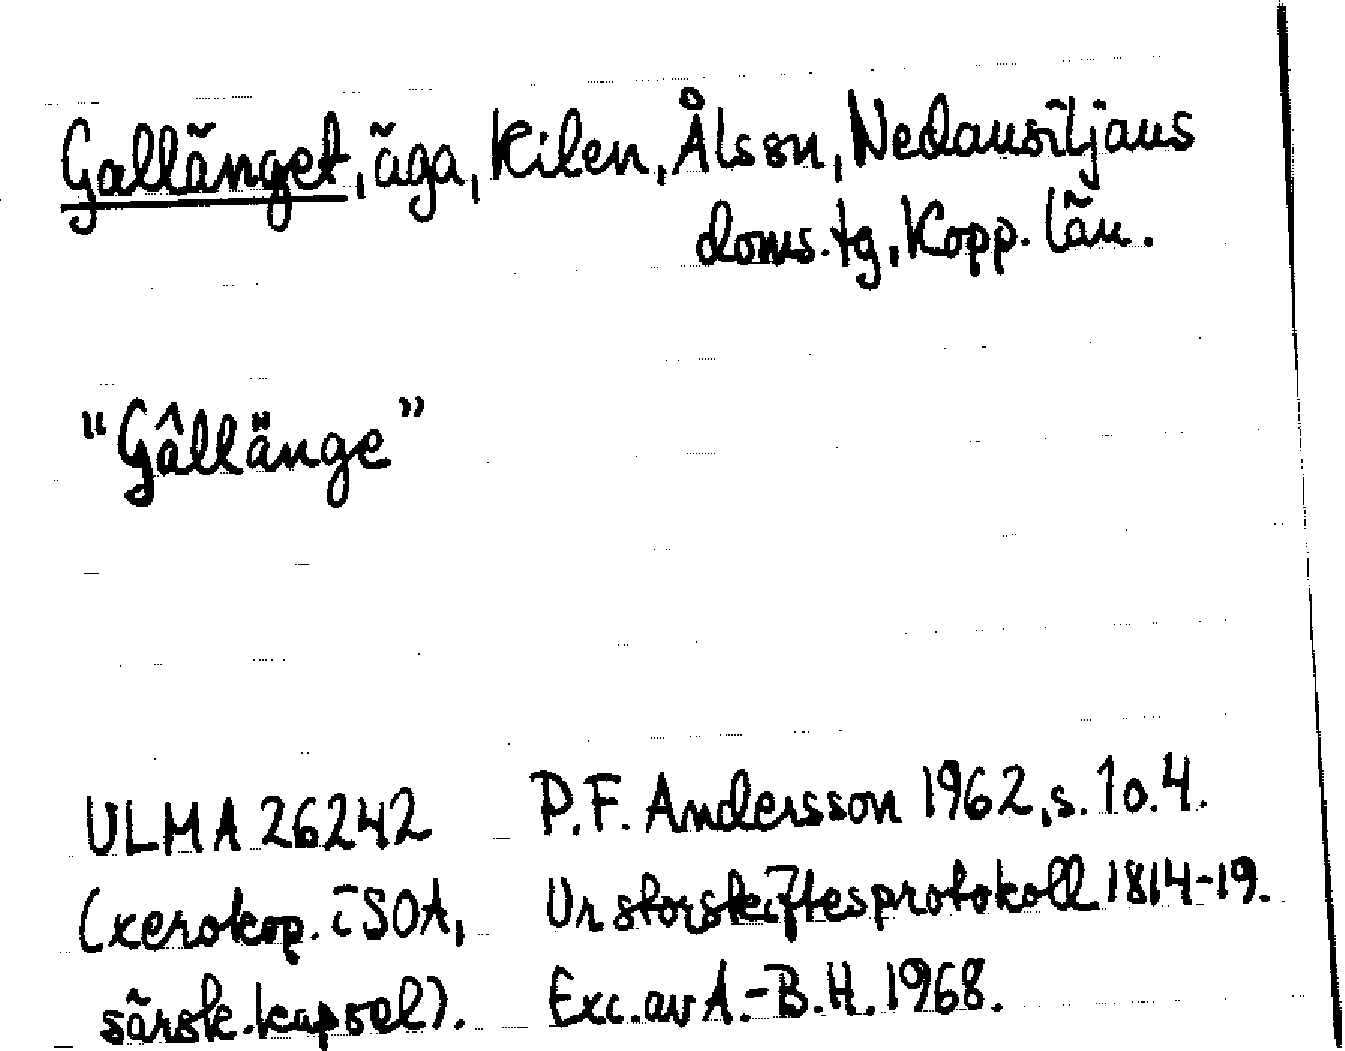 Gallänget, äga, Kilen, Ål ssn, Nedansiljans
doms.tg, Kopp. län.
"Gâllänge"
ULMA 26242 P.F. Andersson 1962, s. 10.4.
(xerokop. i SOA, Ur storskiftesprotokoll 1814-19.
särsk. kapsel). Exc. av A.-B.H. 1968.